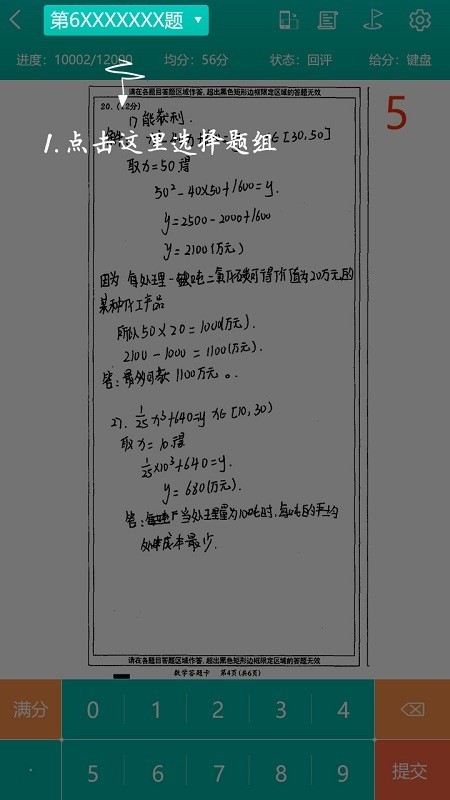 第6XXXXXXX题
进度：10002/12000 均分：56分 状态：回评 给分：键盘
请在各题目答题区域作答，超出黑色矩形边框限定区域的答题无效
20.（12分）
能获利.
1.点击这里选择题组
∈[30,50]
取x=50得
50²-40×50+1600=y.
y=2500-2000+1600
y=2100(万元)
因为 每处理一吨二氧化碳可得价值为20万元的
某种化工产品
所以50×20=1000(万元).
2100-1000=1100(万元).
答：最多可获1100万元。
5
1/25 x³+640=y x∈[10,30)
取x=10得
1/25×10³+640=y.
y=680(万元).
答：当处理量为10吨时,每吨的平均
处理成本最少.
请在各题目答题区域作答，超出黑色矩形边框限定区域的答题无效
数学答题卡 第4页(共6页)
满分 0 1 2 3 4
. 5 6 7 8 9 提交